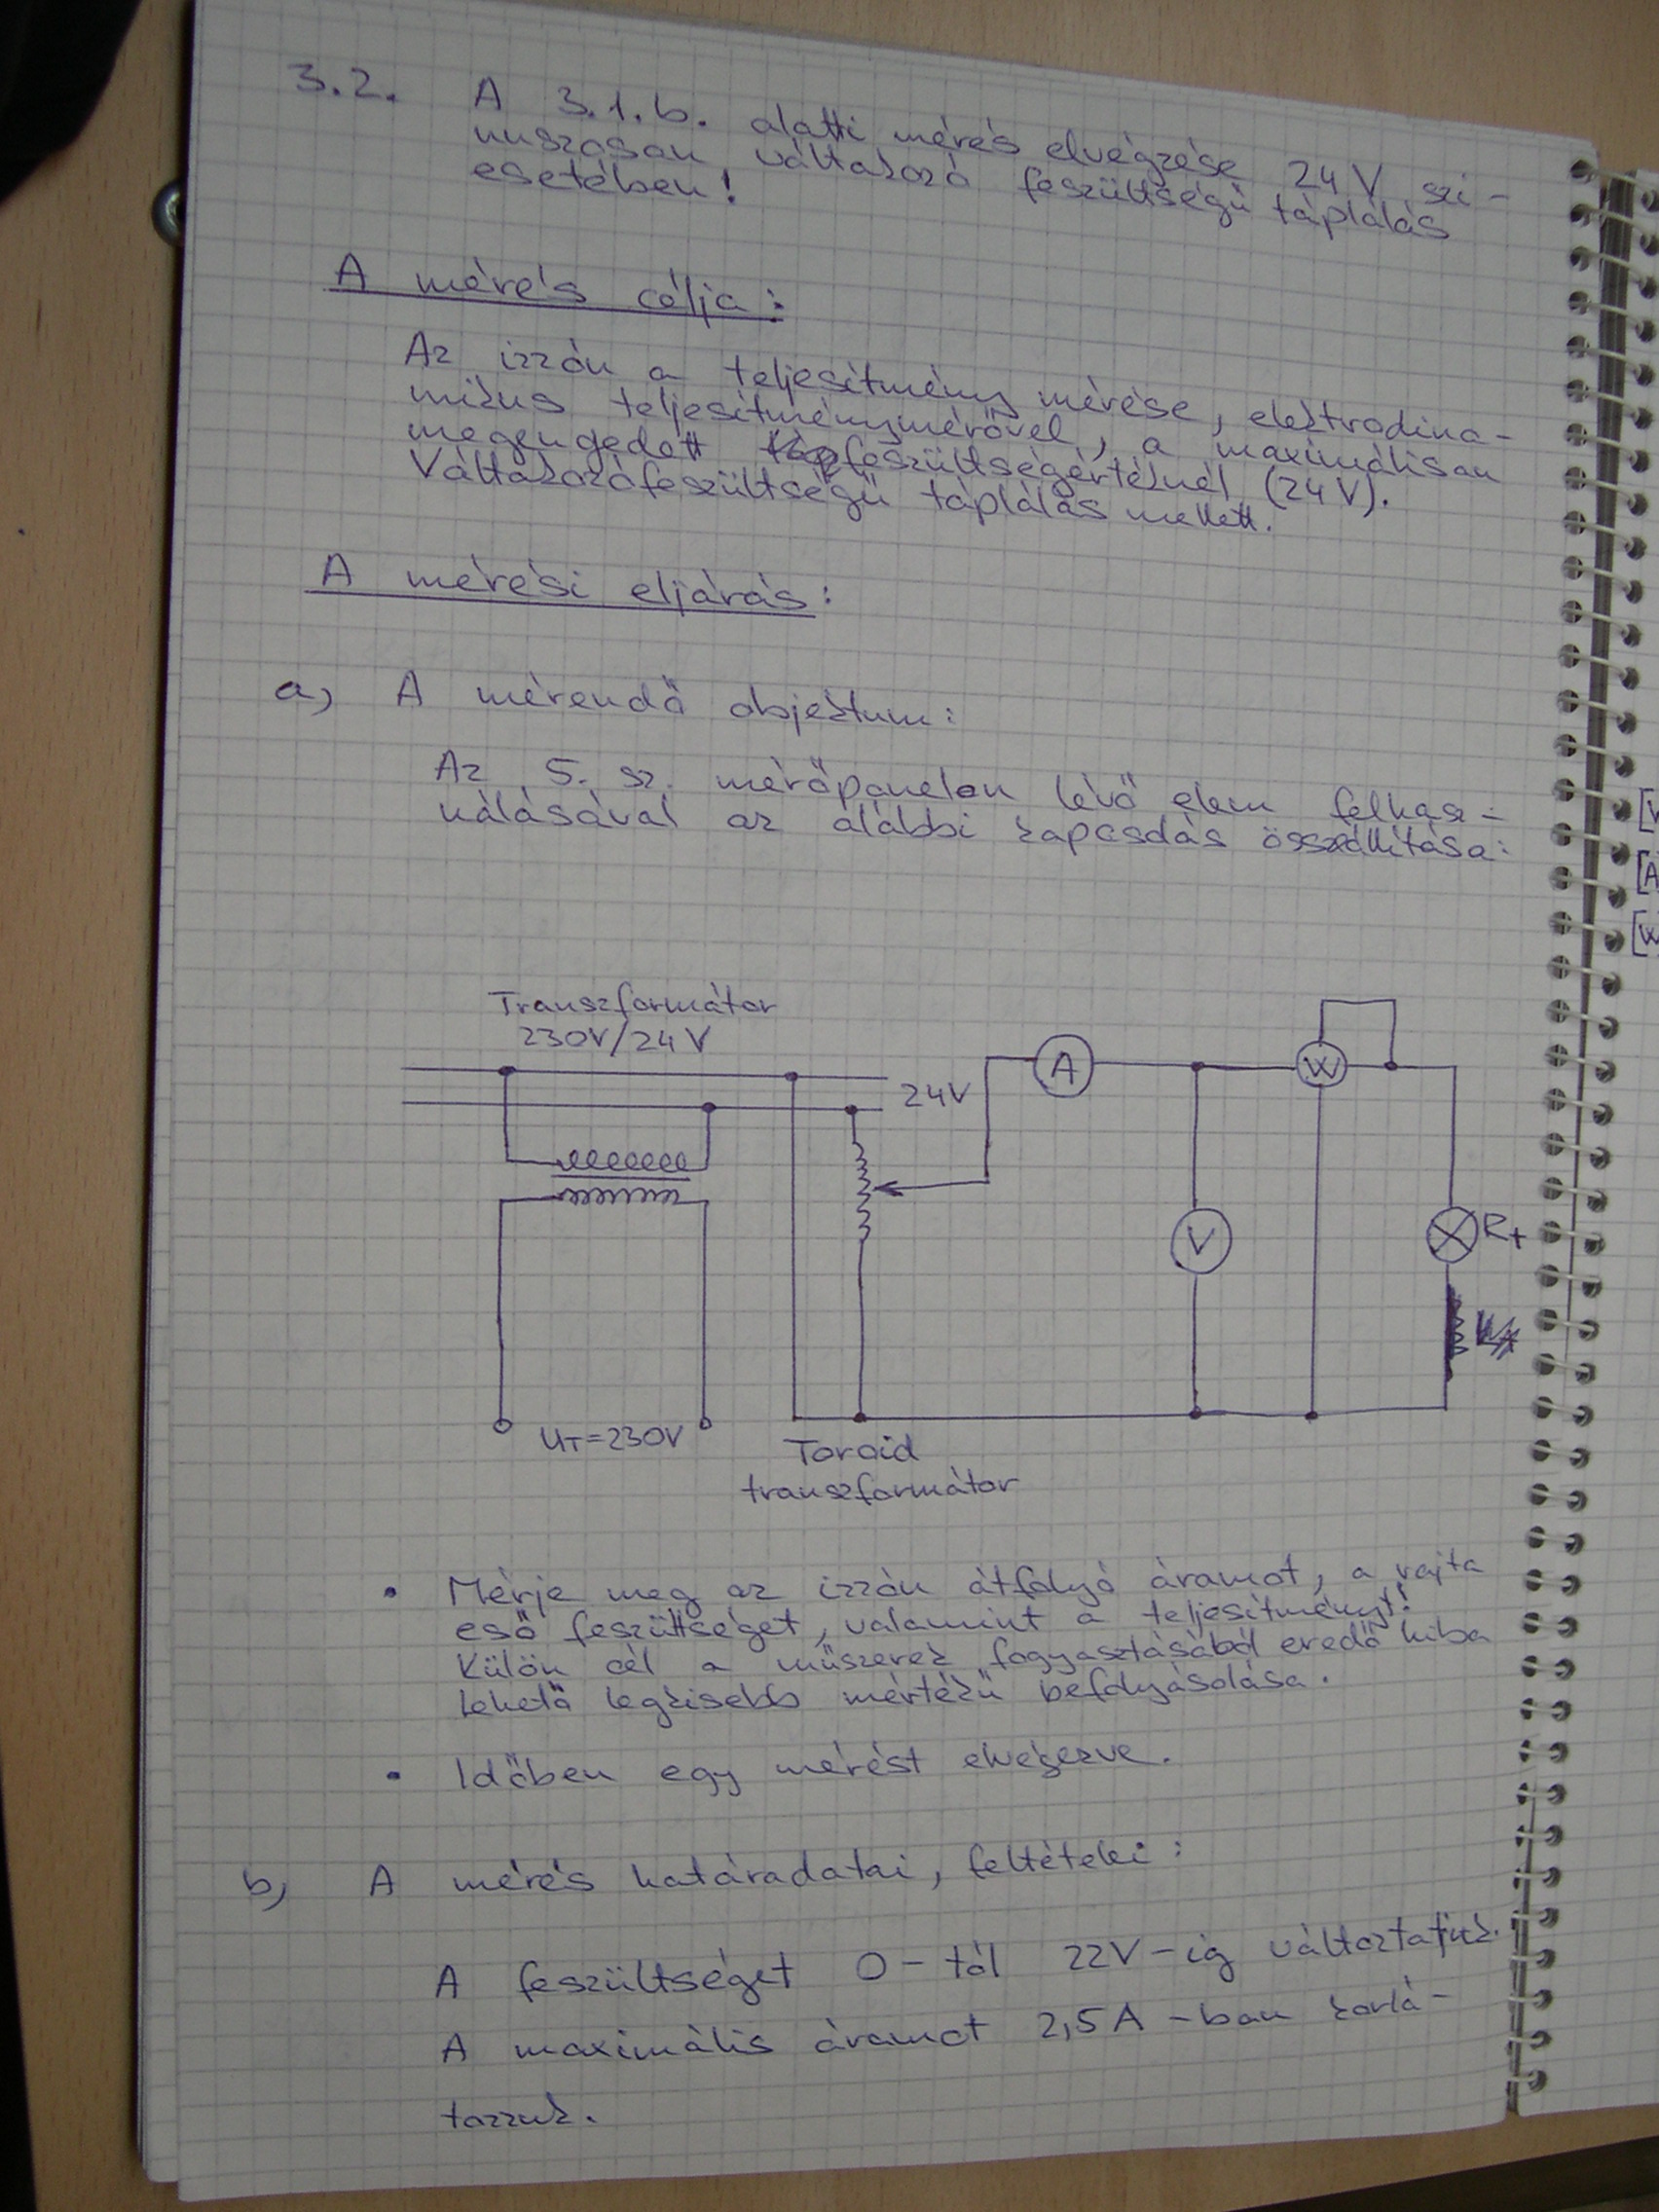 3.2. A 3.1.b. alatti mérés elvégzése 24V szi-
nuszosan váltakozó feszültségű táplálás
esetében!
A mérés célja:
Az izzón a teljesítmény mérése, elektrodina-
mikus teljesítménymérővel, a maximálisan
megengedett feszültségértéknél (24V).
Váltakozófeszültségű táplálás mellett.
A mérési eljárás:
a, A mérendő objektum:
Az 5. sz. mérőpanelon lévő elem felhasz-
nálásával az alábbi kapcsolás összeállítása:
Transzformátor
230V/24V
24V
A
W
V
Rt
UT=230V
Toroid
transzformátor
• Mérje meg az izzón átfolyó áramot, a rajta
eső feszültséget, valamint a teljesítményt!
Külön cél a műszerek fogyasztásából eredő hiba
lehető legkisebb mértékű befolyásolása.
• Időben egy mérést elvégezve.
b, A mérés határadatai, feltételei:
A feszültséget 0-tól 22V-ig változtatjuk.
A maximális áramot 2,5A-ban korlá-
tozzuk.
[V
[A
[W